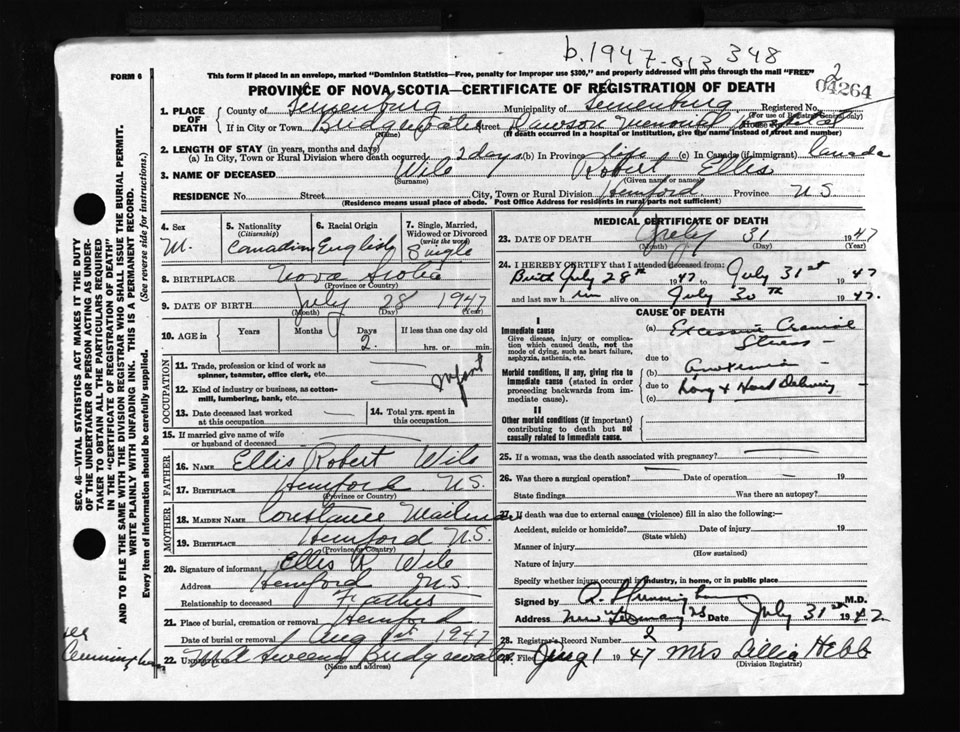 b.1947-013348
FORM 6
This form if placed in an envelope, marked "Dominion Statistics—Free, penalty for improper use $300," and properly addressed will pass through the mail "FREE"
2
04264
PROVINCE OF NOVA SCOTIA—CERTIFICATE OF REGISTRATION OF DEATH
1. PLACE OF DEATH
County of Lunenburg Municipality of Lunenburg Registered No.
(For use of Registrar General only)
If in City or Town Bridgewater Street Dawson Memorial Hospital House No.
(Name) (If death occurred in a hospital or institution, give the name instead of street and number)
2. LENGTH OF STAY (in years, months and days)
(a) In City, Town or Rural Division where death occurred 2 days (b) In Province life (c) In Canada (if immigrant) Canada
3. NAME OF DECEASED Wile Robert Ellis
(Surname) (Given name or names)
RESIDENCE No. Street City, Town or Rural Division Hemford Province N.S
(Residence means usual place of abode. Post Office Address for residents in rural parts not sufficient)
4. Sex M.
5. Nationality (Citizenship) Canadian
6. Racial Origin English
7. Single, Married, Widowed or Divorced (write the word) Single
8. BIRTHPLACE Nova Scotia
(Province or Country)
9. DATE OF BIRTH July 28 1947
(Month) (Day) (Year)
10. AGE in Years Months Days 2. If less than one day old hrs. or min.
OCCUPATION
11. Trade, profession or kind of work as spinner, teamster, office clerk, etc.
Infant
12. Kind of industry or business, as cotton-mill, lumbering, bank, etc.
13. Date deceased last worked at this occupation
14. Total yrs. spent in this occupation
15. If married give name of wife or husband of deceased
FATHER
16. NAME Ellis Robert Wile
17. BIRTHPLACE Hemford N.S.
(Province or Country)
MOTHER
18. MAIDEN NAME Constance Mailman
19. BIRTHPLACE Hemford N.S.
(Province or Country)
20. Signature of informant Ellis R Wile
Address Hemford N.S
Relationship to deceased Father
21. Place of burial, cremation or removal Hemford
Date of burial or removal Aug 1st 1947
22. UNDERTAKER Sweeny Bridgewater
(Name and address)
MEDICAL CERTIFICATE OF DEATH
23. DATE OF DEATH July 31 1947
(Month) (Day) (Year)
24. I HEREBY CERTIFY that I attended deceased from:
Birth July 28th 1947 to July 31st 1947
and last saw him alive on July 30th 1947.
CAUSE OF DEATH
I
Immediate cause
Give disease, injury or complication which caused death, not the mode of dying, such as heart failure, asphyxia, asthenia, etc.
(a) Excessive Cranial Stress
due to
Morbid conditions, if any, giving rise to immediate cause (stated in order proceeding backwards from immediate cause).
(b) Anoxemia
due to Long & Hard Delivery
(c)
II
Other morbid conditions (if important) contributing to death but not causally related to immediate cause.
25. If a woman, was the death associated with pregnancy?
26. Was there a surgical operation? Date of operation 19
State findings Was there an autopsy?
27. If death was due to external causes (violence) fill in also the following:—
Accident, suicide or homicide? Date of injury 19
(State which)
Manner of injury
(How sustained)
Nature of injury
Specify whether injury occurred in industry, in home, or in public place
Signed by M.D.
Address New Germany NS Date July 31st 1947
28. Registrar's Record Number 2
29. Filed Aug 1 1947 Mrs Lillia Hebb
(Division Registrar)
SEC. 46—VITAL STATISTICS ACT MAKES IT THE DUTY
OF THE UNDERTAKER OR PERSON ACTING AS UNDERTAKER TO OBTAIN ALL THE PARTICULARS REQUIRED
IN THE "CERTIFICATE OF REGISTRATION OF DEATH"
AND TO FILE THE SAME WITH THE DIVISION REGISTRAR WHO SHALL ISSUE THE BURIAL PERMIT.
WRITE PLAINLY WITH UNFADING INK. THIS IS A PERMANENT RECORD.
Every item of information should be carefully supplied. (See reverse side for instructions.)